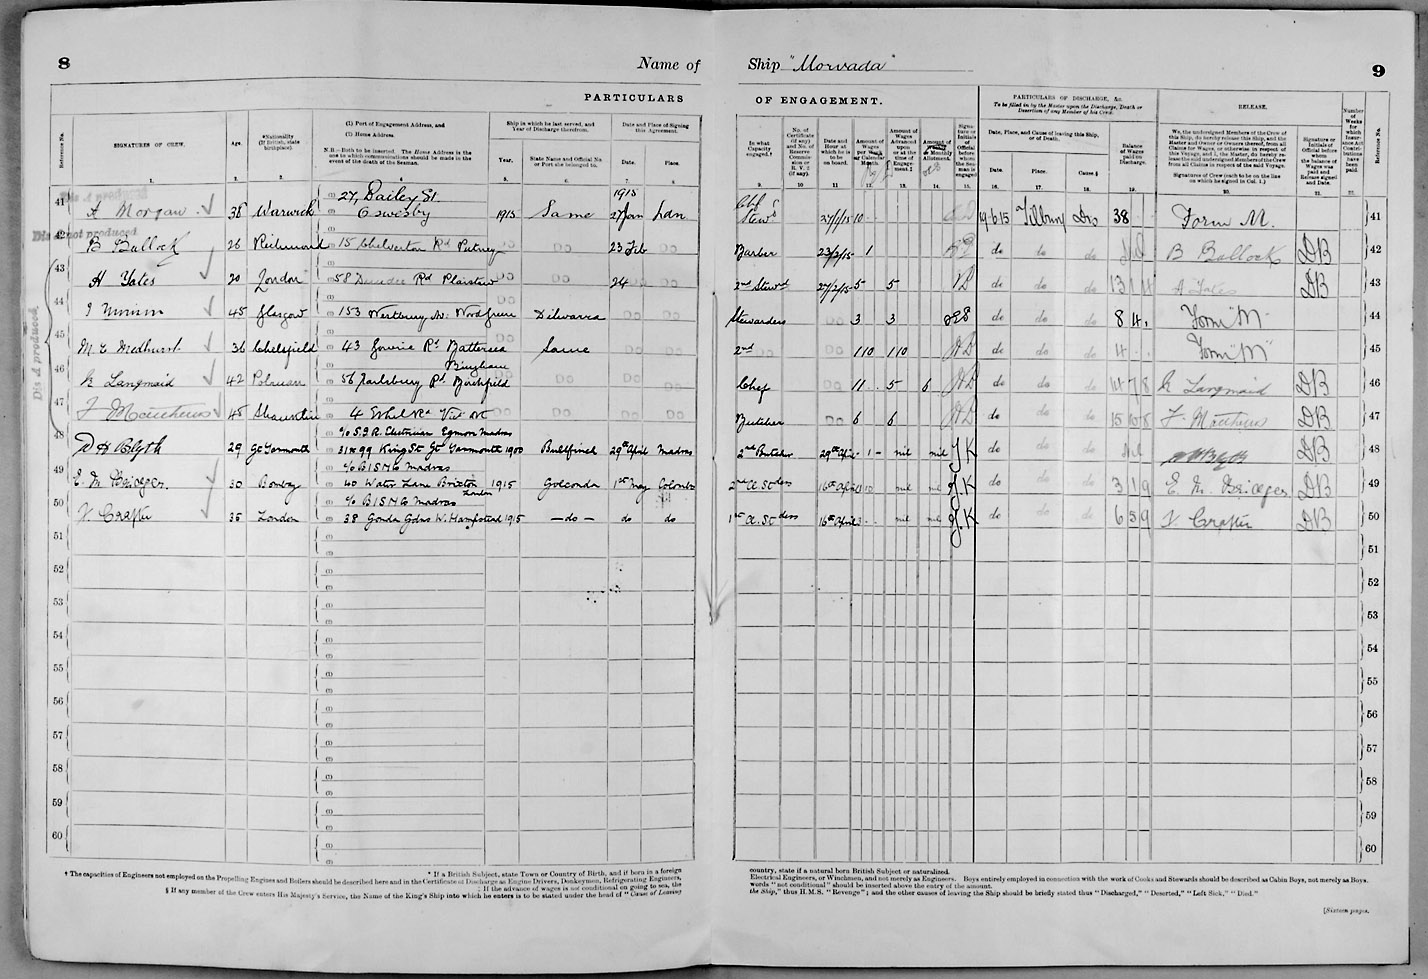 8
Name of
Ship "Morvada"
9
PARTICULARS
OF ENGAGEMENT.
PARTICULARS OF DISCHARGE, &c.
To be filled in by the Master upon the Discharge, Death or Desertion of any Member of his Crew.
RELEASE.
Reference No.
SIGNATURES OF CREW.
Age.
*Nationality (If British, state birthplace).
(1) Port of Engagement Address, and
(2) Home Address.
N.B.—Both to be inserted. The Home Address is the one in which communications should be made in the event of the death of the Seaman.
Ship in which he last served, and Year of Discharge therefrom.
Year.
State Name and Official No. or Port she belonged to.
Date and Place of Signing this Agreement.
Date.
Place.
In what Capacity engaged.†
No. of Certificate (if any) and No. of Reserve Commission or R. V. 2 (if any).
Date and Hour at which he is to be on board.
Amount of Wages per Week or Calendar Month.
Amount of Wages Advanced upon or at the time of Engagement.‡
Amount of Monthly Allotment.
Signature or Initials of Official before whom the Seaman is engaged
Date, Place, and Cause of leaving this Ship, or of Death.
Date.
Place.
Cause.§
Balance of Wages paid on Discharge.
We, the undersigned Members of the Crew of this Ship, do hereby release this Ship, and the Master and Owner or Owners thereof, from all Claims for Wages, or otherwise in respect of this Voyage, and I, the Master, do hereby release the said undersigned Members of the Crew from all Claims in respect of the said Voyage.
Signatures of Crew (each to be on the line on which he signed in Col. 1.)
Signature or Initials of Official before whom the balance of Wages was paid and Release signed and Date.
Number of Weeks for which Insurance Act Contributions have been paid.
Reference No.
1. 2. 3. 4. 5. 6. 7. 8. 9. 10 11 12. 13. 14 15. 16. 17. 18. 19. 20. 21. 22.
Dis A produced
41 A Morgan 38 Warwick 27, Bailey St. Oswestry 1915 Same 1915 27 Jan Lon Chf Stewd 27/1/15 10 19.6.15 Tilbury Dis 38 Form M. 41
Dis A not produced
42 B Bullock 26 Richmond 15 Chelverton Rd Putney DO DO 23 Feb Barber 23/2/15 1 do do do Nil B Bullock DB 42
43 A Yates 20 London 58 Rd Plaistow DO DO 24 2nd Stewd 27/2/15 5 5 do do do 13 A Yates DB 43
44 45 Glasgow 153 Westbury Av. Wood Green Dilwarra DO DO Stewardess DO 3 3 do do do 8 4 Form "M" 44
Dis A produced
45 M. E Medhurst 36 Chelsfield 43 Gowrie Rd Battersea DO Same DO DO 2nd DO 110 110 do do do 4 Form "M" 45
46 Langmaid 42 Polruan 56 Rd DO DO DO DO Chef DO 11 5 6 do do do 14 7 8 Langmaid DB 46
47 F Matthews 45 4 Ethel Rd Vict Dk DO DO DO DO Butcher DO 6 6 do do do 15 10 8 F. Matthews DB 47
48 D H Blyth 29 Gt Yarmouth c/o S.I.R. Electrician Egmore Madras
31 & 99 King St Gt Yarmouth 1900 Bullfinch 29th April Madras 2nd Butcher 29th Apl 1 - nil nil J K do do do Nil DB 48
49 E. M. Bridger. 30 Bombay c/o B I S N Co Madras
40 Water Lane Brixton London 1915 Golconda 1st May Colombo 2nd A. Stdess 16th April nil nil J.K do do do 3 1 9 E. M. Bridger DB 49
50 V. Crafter 35 London c/o B I S N Co Madras
38 Gondar Gdns W. Hampstead 1915 — do — do do 1st A. Stdess 16th April 3 nil nil J.K do do do 6 5 9 V. Crafter DB 50
51 51
52 52
53 53
54 54
55 55
56 56
57 57
58 58
59 59
60 60
† The capacities of Engineers not employed on the Propelling Engines and Boilers should be described here and in the Certificate of Discharge as Engine Drivers, Donkeymen, Refrigerating Engineers,
* If a British Subject, state Town or Country of Birth, and if born in a foreign
‡ If the advance of wages is not conditional on going to sea, the
§ If any member of the Crew enters His Majesty's Service, the Name of the King's Ship into which he enters is to be stated under the head of "Cause of Leaving
country, state if a natural born British Subject or naturalized.
Electrical Engineers, or Winchmen, and not merely as Engineers. Boys entirely employed in connection with the work of Cooks and Stewards should be described as Cabin Boys, not merely as Boys.
words "not conditional" should be inserted above the entry of the amount.
the Ship," thus H.M.S. "Revenge"; and the other causes of leaving the Ship should be briefly stated thus "Discharged," "Deserted," "Left Sick," "Died."
[Sixteen pages.